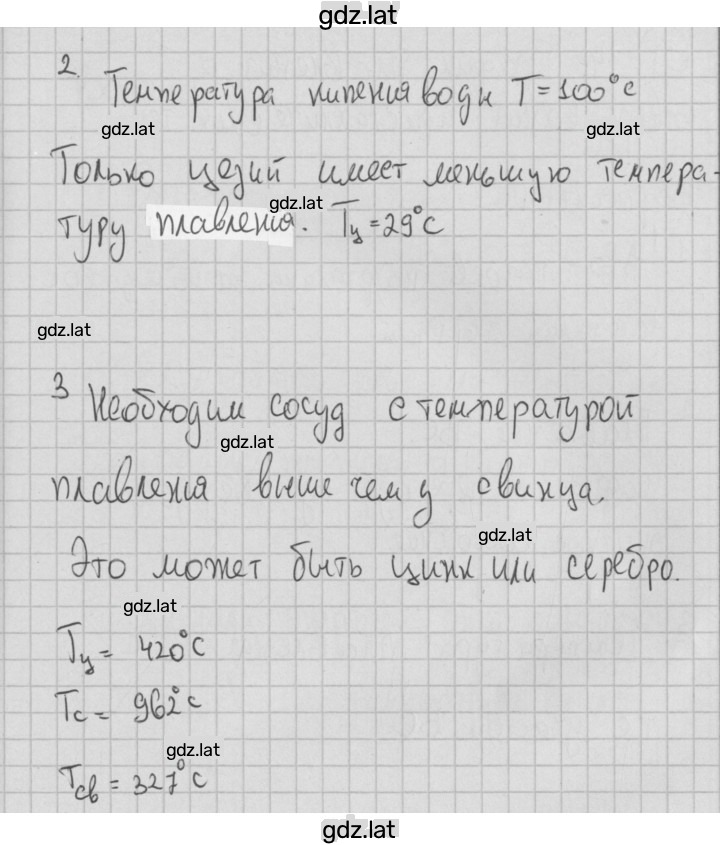 gdz.lat
2. Температура кипения воды T = 100°C
gdz.lat gdz.lat
Только цезий имеет меньшую темпера-
gdz.lat
туру плавления. Tц = 29°C
gdz.lat
3 Необходим сосуд с температурой
gdz.lat
плавления выше чем у свинца.
gdz.lat
Это может быть цинк или серебро.
gdz.lat
Tц = 420°C
Tс = 962°C
gdz.lat
Tсв = 327°C
gdz.lat